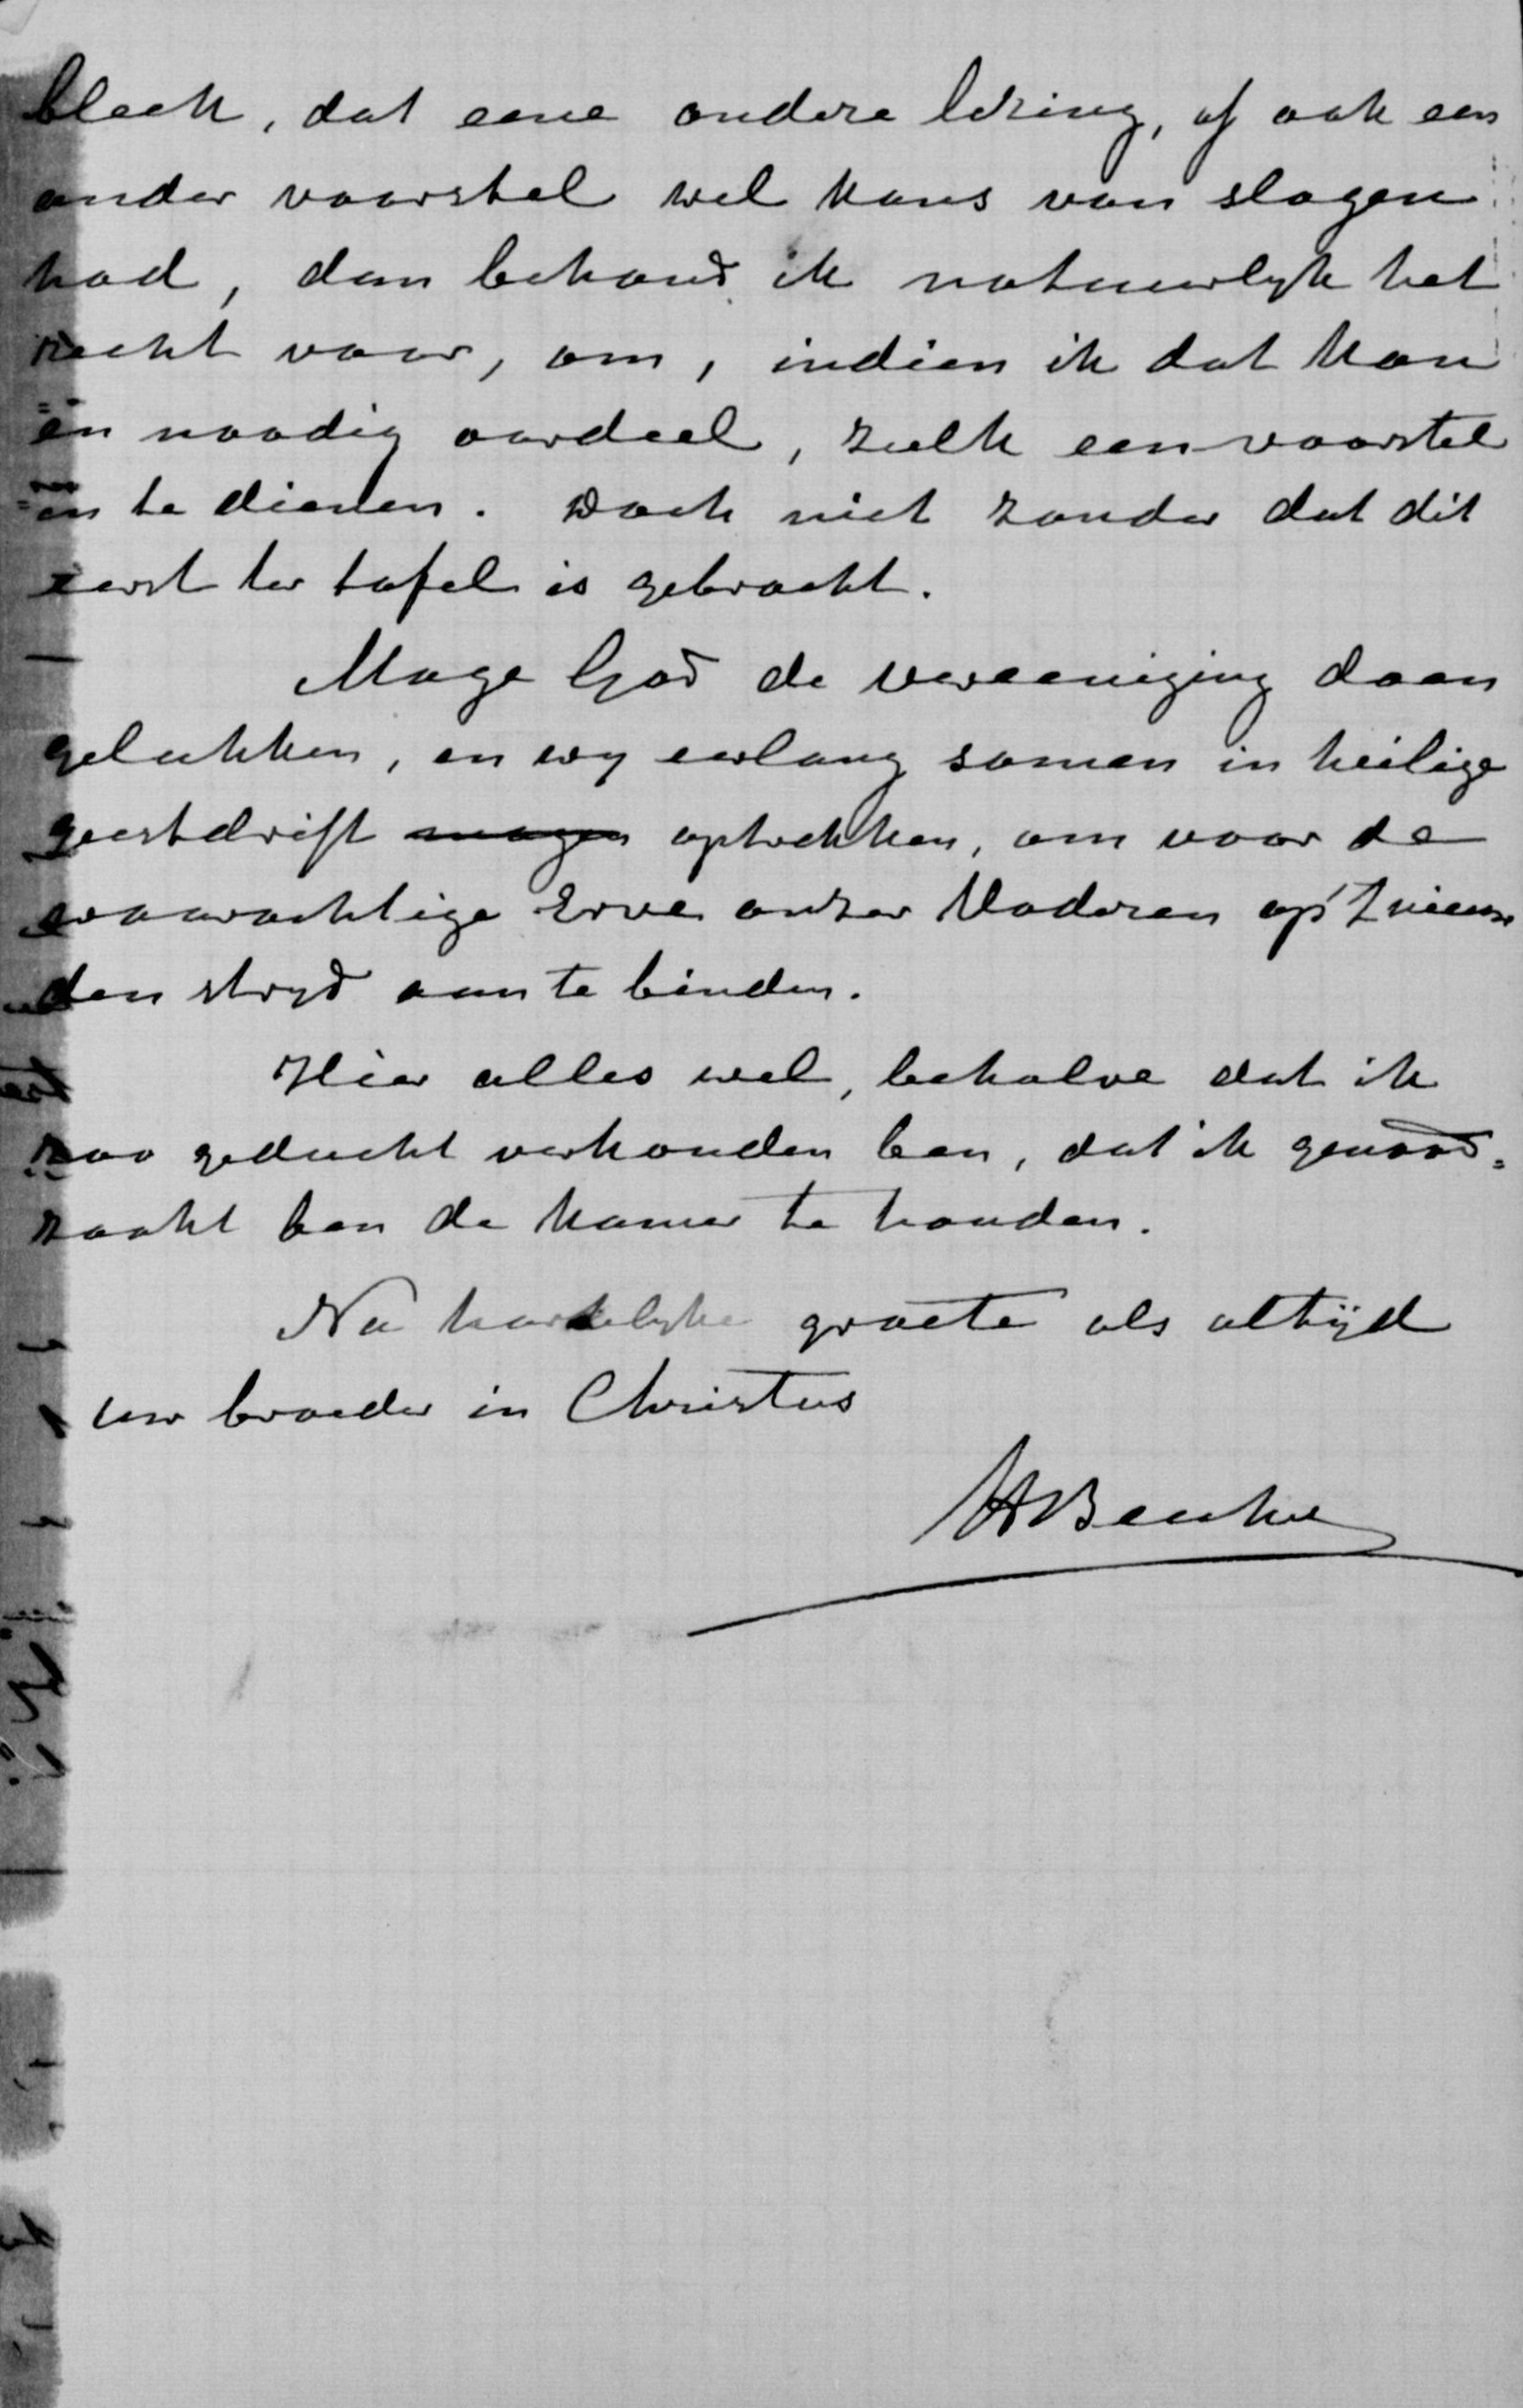 bleek, dat eene andere lezing, of ook een
ander voorstel wel kans van slagen
had, dan behoud ik natuurlyk het
recht voor, om, indien ik dat kan
en noodig oordeel, zulk een voorstel
in te dienen. Doch niet zonder dat dit
eerst ter tafel is gebracht.
Moge God de vereeniging doen
gelukken, en wy eerlang samen in heilige
geestdrift mogen optrekken, om voor de
waarachtige Erve onzer Vaderen op 't nieuw
den stryd aan te binden.
Hier alles wel, behalve dat ik
zoo geducht verkouden ben, dat ik genood=
zaakt ben de kamer te houden.
Na hartelyke groete als altijd
uw broeder in Christus